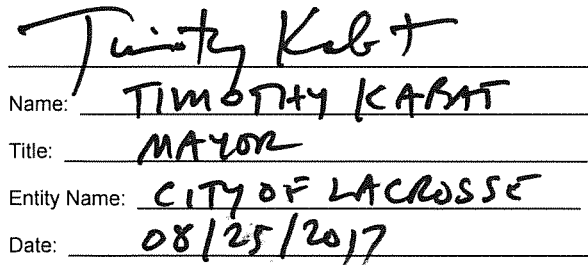 Timothy Kabat
Name: TIMOTHY KABAT
Title: MAYOR
Entity Name: CITY OF LACROSSE
Date: 08/25/2017